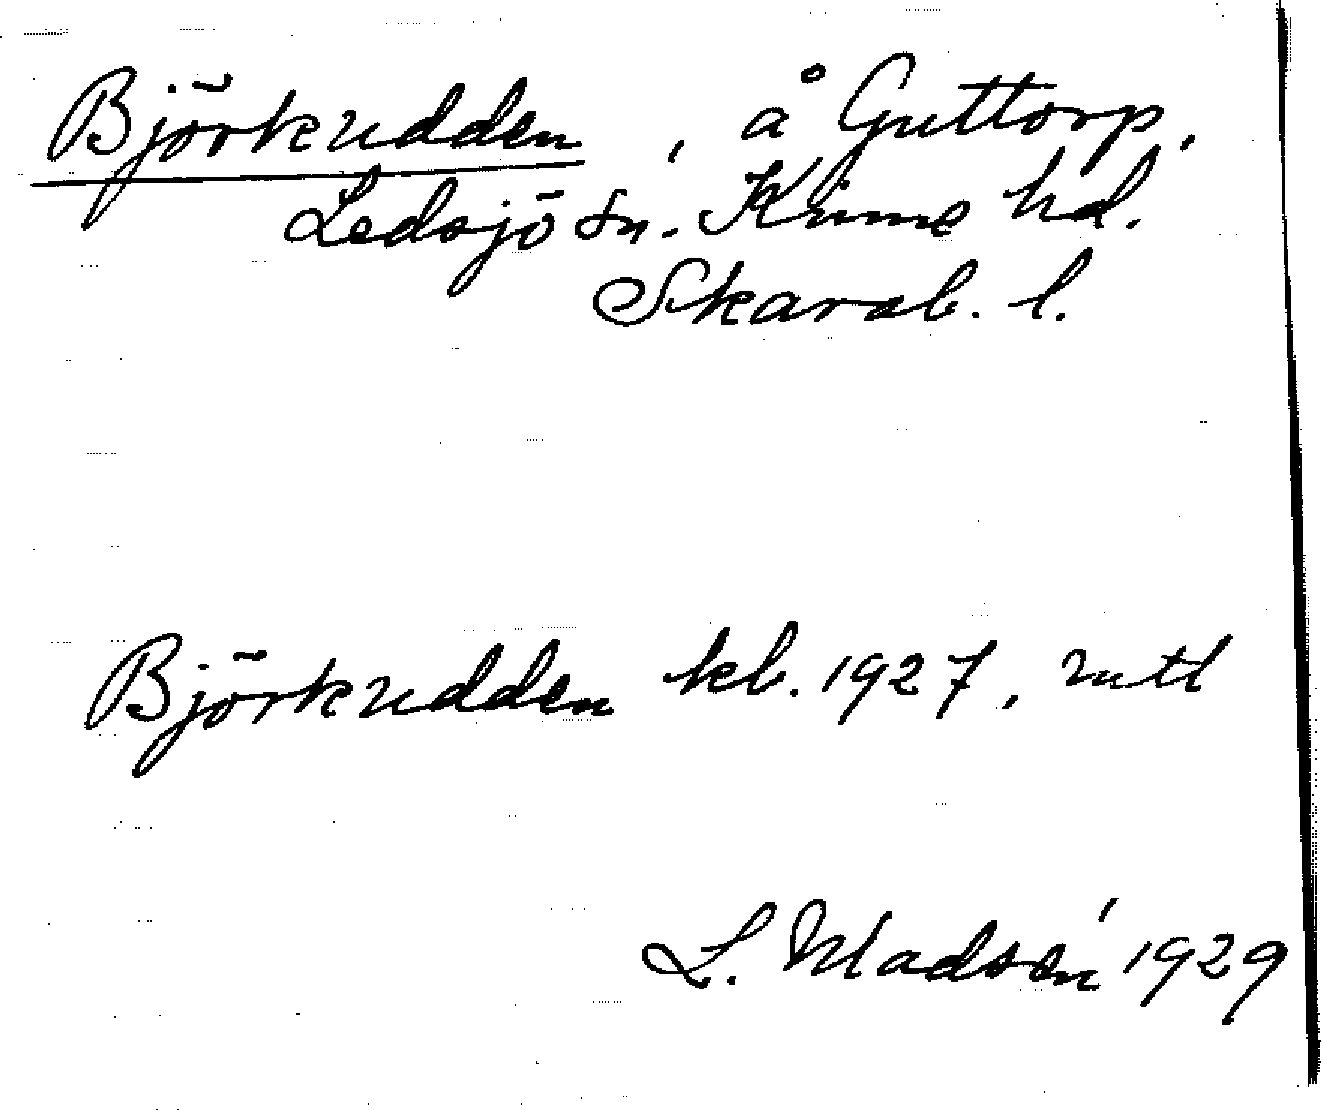 Björkudden, å Guttorp,
Ledsjö sn. Kinne hd.
Skarab. l.
Björkudden kb. 1927, mtl
L. Madsén 1929